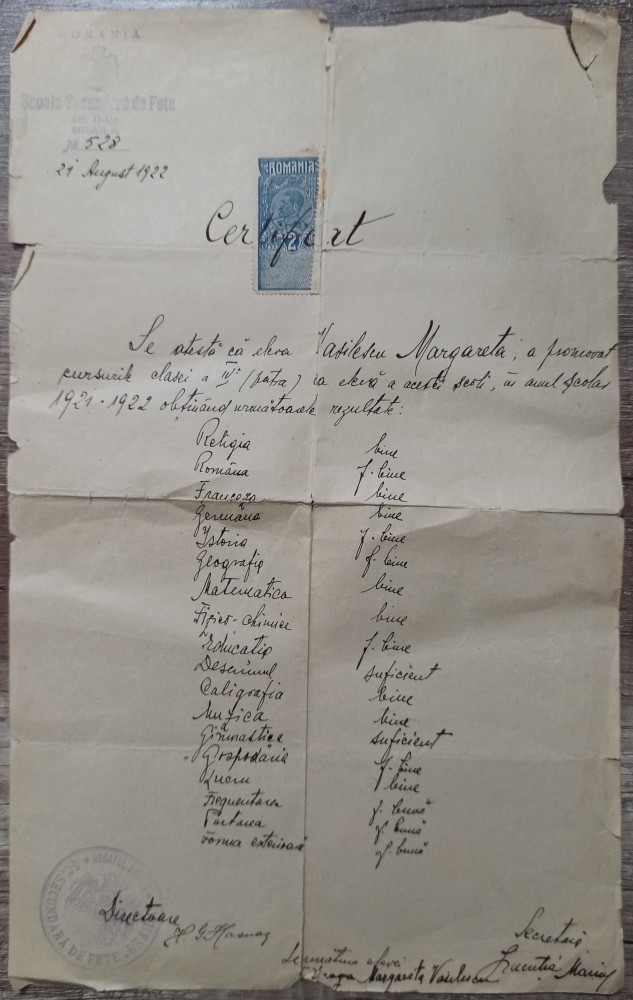 ROMÂNIA
Scoala Secundară de Fete
Gr. II-lea
BRAILA
№ 528
29 August 1922
ROMANIA
2
Certificat
Se atestă că eleva Vasilescu Margareta, a promovat
cursurile clasei a IV-a (patra) ca elevă a acestei scoli, în anul școlar
1921-1922 obținând următoarele rezultate:
Religia bine
Româna f. bine
Franceza bine
Germana bine
Istoria f. bine
Geografia f. bine
Matematica bine
Fizico-chimice bine
Educația f. bine
Desemnul suficient
Caligrafia bine
Muzica bine
Gimnastica suficient
Gospodăria f. bine
Lucru bine
Frequentarea f. bună
Purtarea f. bună
Forma exterioară f. bună
SECUNDARĂ DE FETE
Directoare
Secretară
Semnătura elevei
Margareta Vasilescu